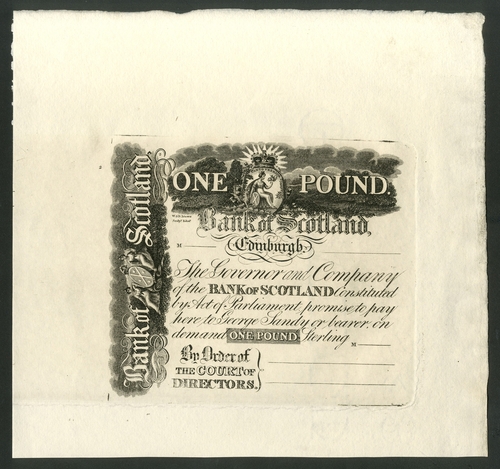 Bank of Scotland,
ONE POUND.
Bank of Scotland,
M
Edinburgh
The Governor and Company
of the BANK OF SCOTLAND Constituted
by Act of Parliament, promise to pay
here, to George Sandy or bearer, on
demand ONE POUND Sterling
M
By Order of
THE COURT OF
DIRECTORS.